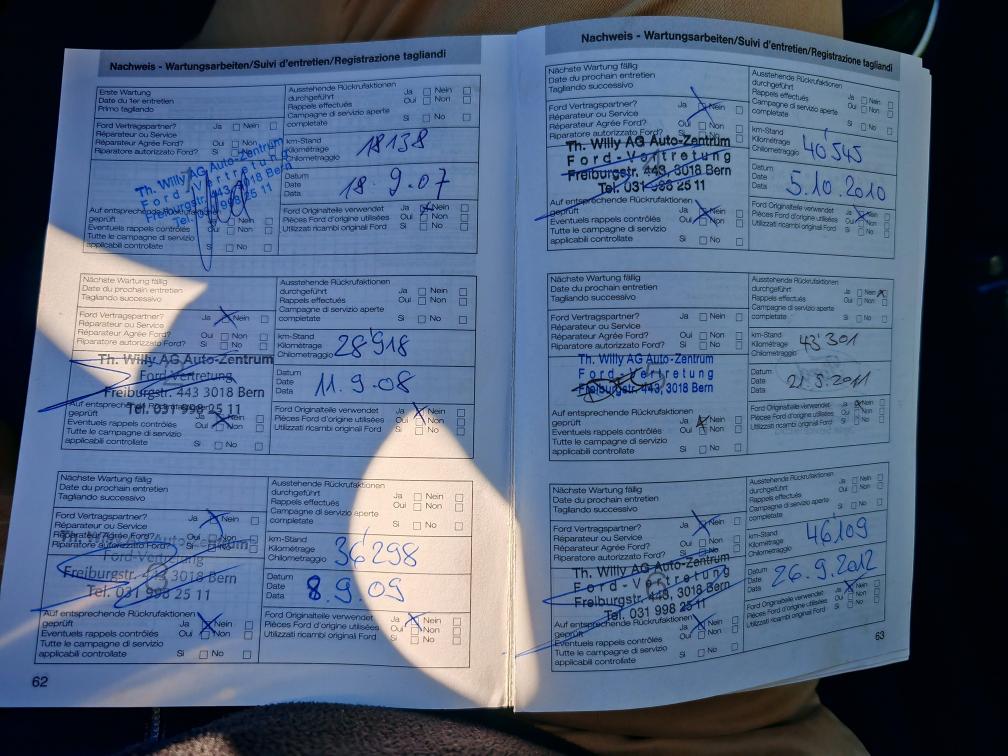 Nachweis - Wartungsarbeiten/Suivi d'entretien/Registrazione tagliandi
Erste Wartung
Date du 1er entretien
Primo tagliando
Ausstehende Rückrufaktionen
durchgeführt Ja Nein
Rappels effectués Oui Non
Campagne di servizio aperte
completate Si No
Ford Vertragspartner? Ja Nein
Réparateur ou Service
Réparateur Agrée Ford? Oui Non
Riparatore autorizzato Ford?
km-Stand
Kilométrage
Chilometraggio 18138
Th. Willy AG Auto-Zentrum
Ford-Vertretung
Freiburgstr. 443, 3018 Bern
Tel. 031 998 25 11
Datum
Date
Data 18.9.07
Auf entsprechende Rückrufaktionen
geprüft Ja Nein
Eventuels rappels contrôlés Oui Non
Tutte le campagne di servizio
applicabili controllate Si No
Ford Originalteile verwendet Ja Nein
Pièces Ford d'origine utilisées Oui Non
Utilizzati ricambi originali Ford Si No
Nächste Wartung fällig
Date du prochain entretien
Tagliando successivo
Ausstehende Rückrufaktionen
durchgeführt Ja Nein
Rappels effectués Oui Non
Campagne di servizio aperte
completate Si No
Ford Vertragspartner? Ja Nein
Réparateur ou Service
Réparateur Agrée Ford? Oui Non
Riparatore autorizzato Ford? Si No
km-Stand
Kilométrage
Chilometraggio 28'918
Th. Willy AG Auto-Zentrum
Ford-Vertretung
Freiburgstr. 443 3018 Bern
Tel. 031 998 25 11
Datum
Date
Data 11.9.08
Auf entsprechende Rückrufaktionen
geprüft Ja Nein
Eventuels rappels contrôlés Oui Non
Tutte le campagne di servizio
applicabili controllate Si No
Ford Originalteile verwendet Ja Nein
Pièces Ford d'origine utilisées Oui Non
Utilizzati ricambi originali Ford Si No
Nächste Wartung fällig
Date du prochain entretien
Tagliando successivo
Ausstehende Rückrufaktionen
durchgeführt Ja Nein
Rappels effectués Oui Non
Campagne di servizio aperte
completate Si No
Ford Vertragspartner? Ja Nein
Réparateur ou Service
Réparateur Agrée Ford? Oui Non
Riparatore autorizzato Ford? Si No
km-Stand
Kilométrage
Chilometraggio 36'298
Th. Willy AG Auto-Zentrum
Ford-Vertretung
Freiburgstr. 443 3018 Bern
Tel. 031 998 25 11
Datum
Date
Data 8.9.09
Auf entsprechende Rückrufaktionen
geprüft Ja Nein
Eventuels rappels contrôlés Oui Non
Tutte le campagne di servizio
applicabili controllate Si No
Ford Originalteile verwendet Ja Nein
Pièces Ford d'origine utilisées Oui Non
Utilizzati ricambi originali Ford Si No
62
Nachweis - Wartungsarbeiten/Suivi d'entretien/Registrazione tagliandi
Nächste Wartung fällig
Date du prochain entretien
Tagliando successivo
Ausstehende Rückrufaktionen
durchgeführt Ja Nein
Rappels effectués Oui Non
Campagne di servizio aperte
completate Si No
Ford Vertragspartner? Ja Nein
Réparateur ou Service
Réparateur Agrée Ford? Oui Non
Riparatore autorizzato Ford?
km-Stand
Kilométrage
Chilometraggio 40'545
Th. Willy AG Auto-Zentrum
Ford-Vertretung
Freiburgstr. 443, 3018 Bern
Tel. 031 998 25 11
Datum
Date
Data 5.10.2010
Auf entsprechende Rückrufaktionen
geprüft Ja Nein
Eventuels rappels contrôlés Oui Non
Tutte le campagne di servizio
applicabili controllate Si No
Ford Originalteile verwendet Ja Nein
Pièces Ford d'origine utilisées Oui Non
Utilizzati ricambi originali Ford Si No
Nächste Wartung fällig
Date du prochain entretien
Tagliando successivo
Ausstehende Rückrufaktionen
durchgeführt Ja Nein
Rappels effectués Oui Non
Campagne di servizio aperte
completate Si No
Ford Vertragspartner? Ja Nein
Réparateur ou Service
Réparateur Agrée Ford? Oui Non
Riparatore autorizzato Ford? Si No
km-Stand
Kilométrage
Chilometraggio 43301
Th. Willy AG Auto-Zentrum
Ford-Vertretung
Freiburgstr. 443, 3018 Bern
Datum
Date
Data
Auf entsprechende Rückrufaktionen
geprüft Ja Nein
Eventuels rappels contrôlés Oui Non
Tutte le campagne di servizio
applicabili controllate Si No
Ford Originalteile verwendet Ja Nein
Pièces Ford d'origine utilisées Oui Non
Utilizzati ricambi originali Ford Si No
Nächste Wartung fällig
Date du prochain entretien
Tagliando successivo
Ausstehende Rückrufaktionen
durchgeführt Ja Nein
Rappels effectués Oui Non
Campagne di servizio aperte
completate Si No
Ford Vertragspartner? Ja Nein
Réparateur ou Service
Réparateur Agrée Ford? Oui Non
Riparatore autorizzato Ford? Si No
km-Stand
Kilométrage
Chilometraggio 46'109
Th. Willy AG Auto-Zentrum
Ford-Vertretung
Freiburgstr. 443, 3018 Bern
Tel. 031 998 25 11
Datum
Date
Data 26.9.2012
Auf entsprechende Rückrufaktionen
geprüft Ja Nein
Eventuels rappels contrôlés Oui Non
Tutte le campagne di servizio
applicabili controllate Si No
Ford Originalteile verwendet Ja Nein
Pièces Ford d'origine utilisées Oui Non
Utilizzati ricambi originali Ford Si No
63